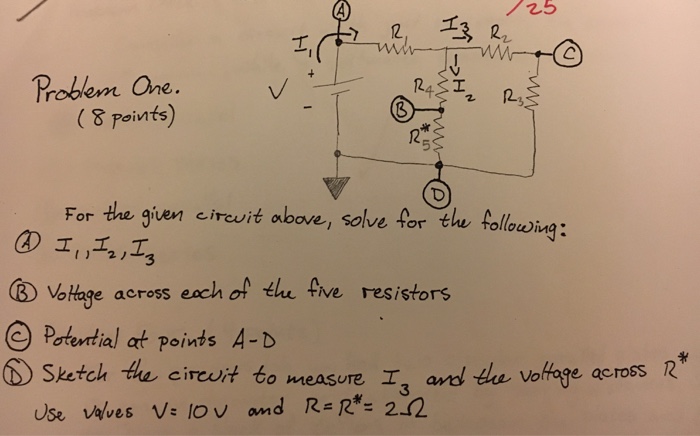 /25
A
I₁
R₁
I₃
R₂
C
V
+
-
R₄
I₂
R₃
B
R*₅
D
Problem One.
(8 points)
For the given circuit above, solve for the following:
A I₁, I₂, I₃
B Voltage across each of the five resistors
C Potential at points A-D
D Sketch the circuit to measure I₃ and the voltage across R*
Use values V= 10V and R=R*= 2Ω